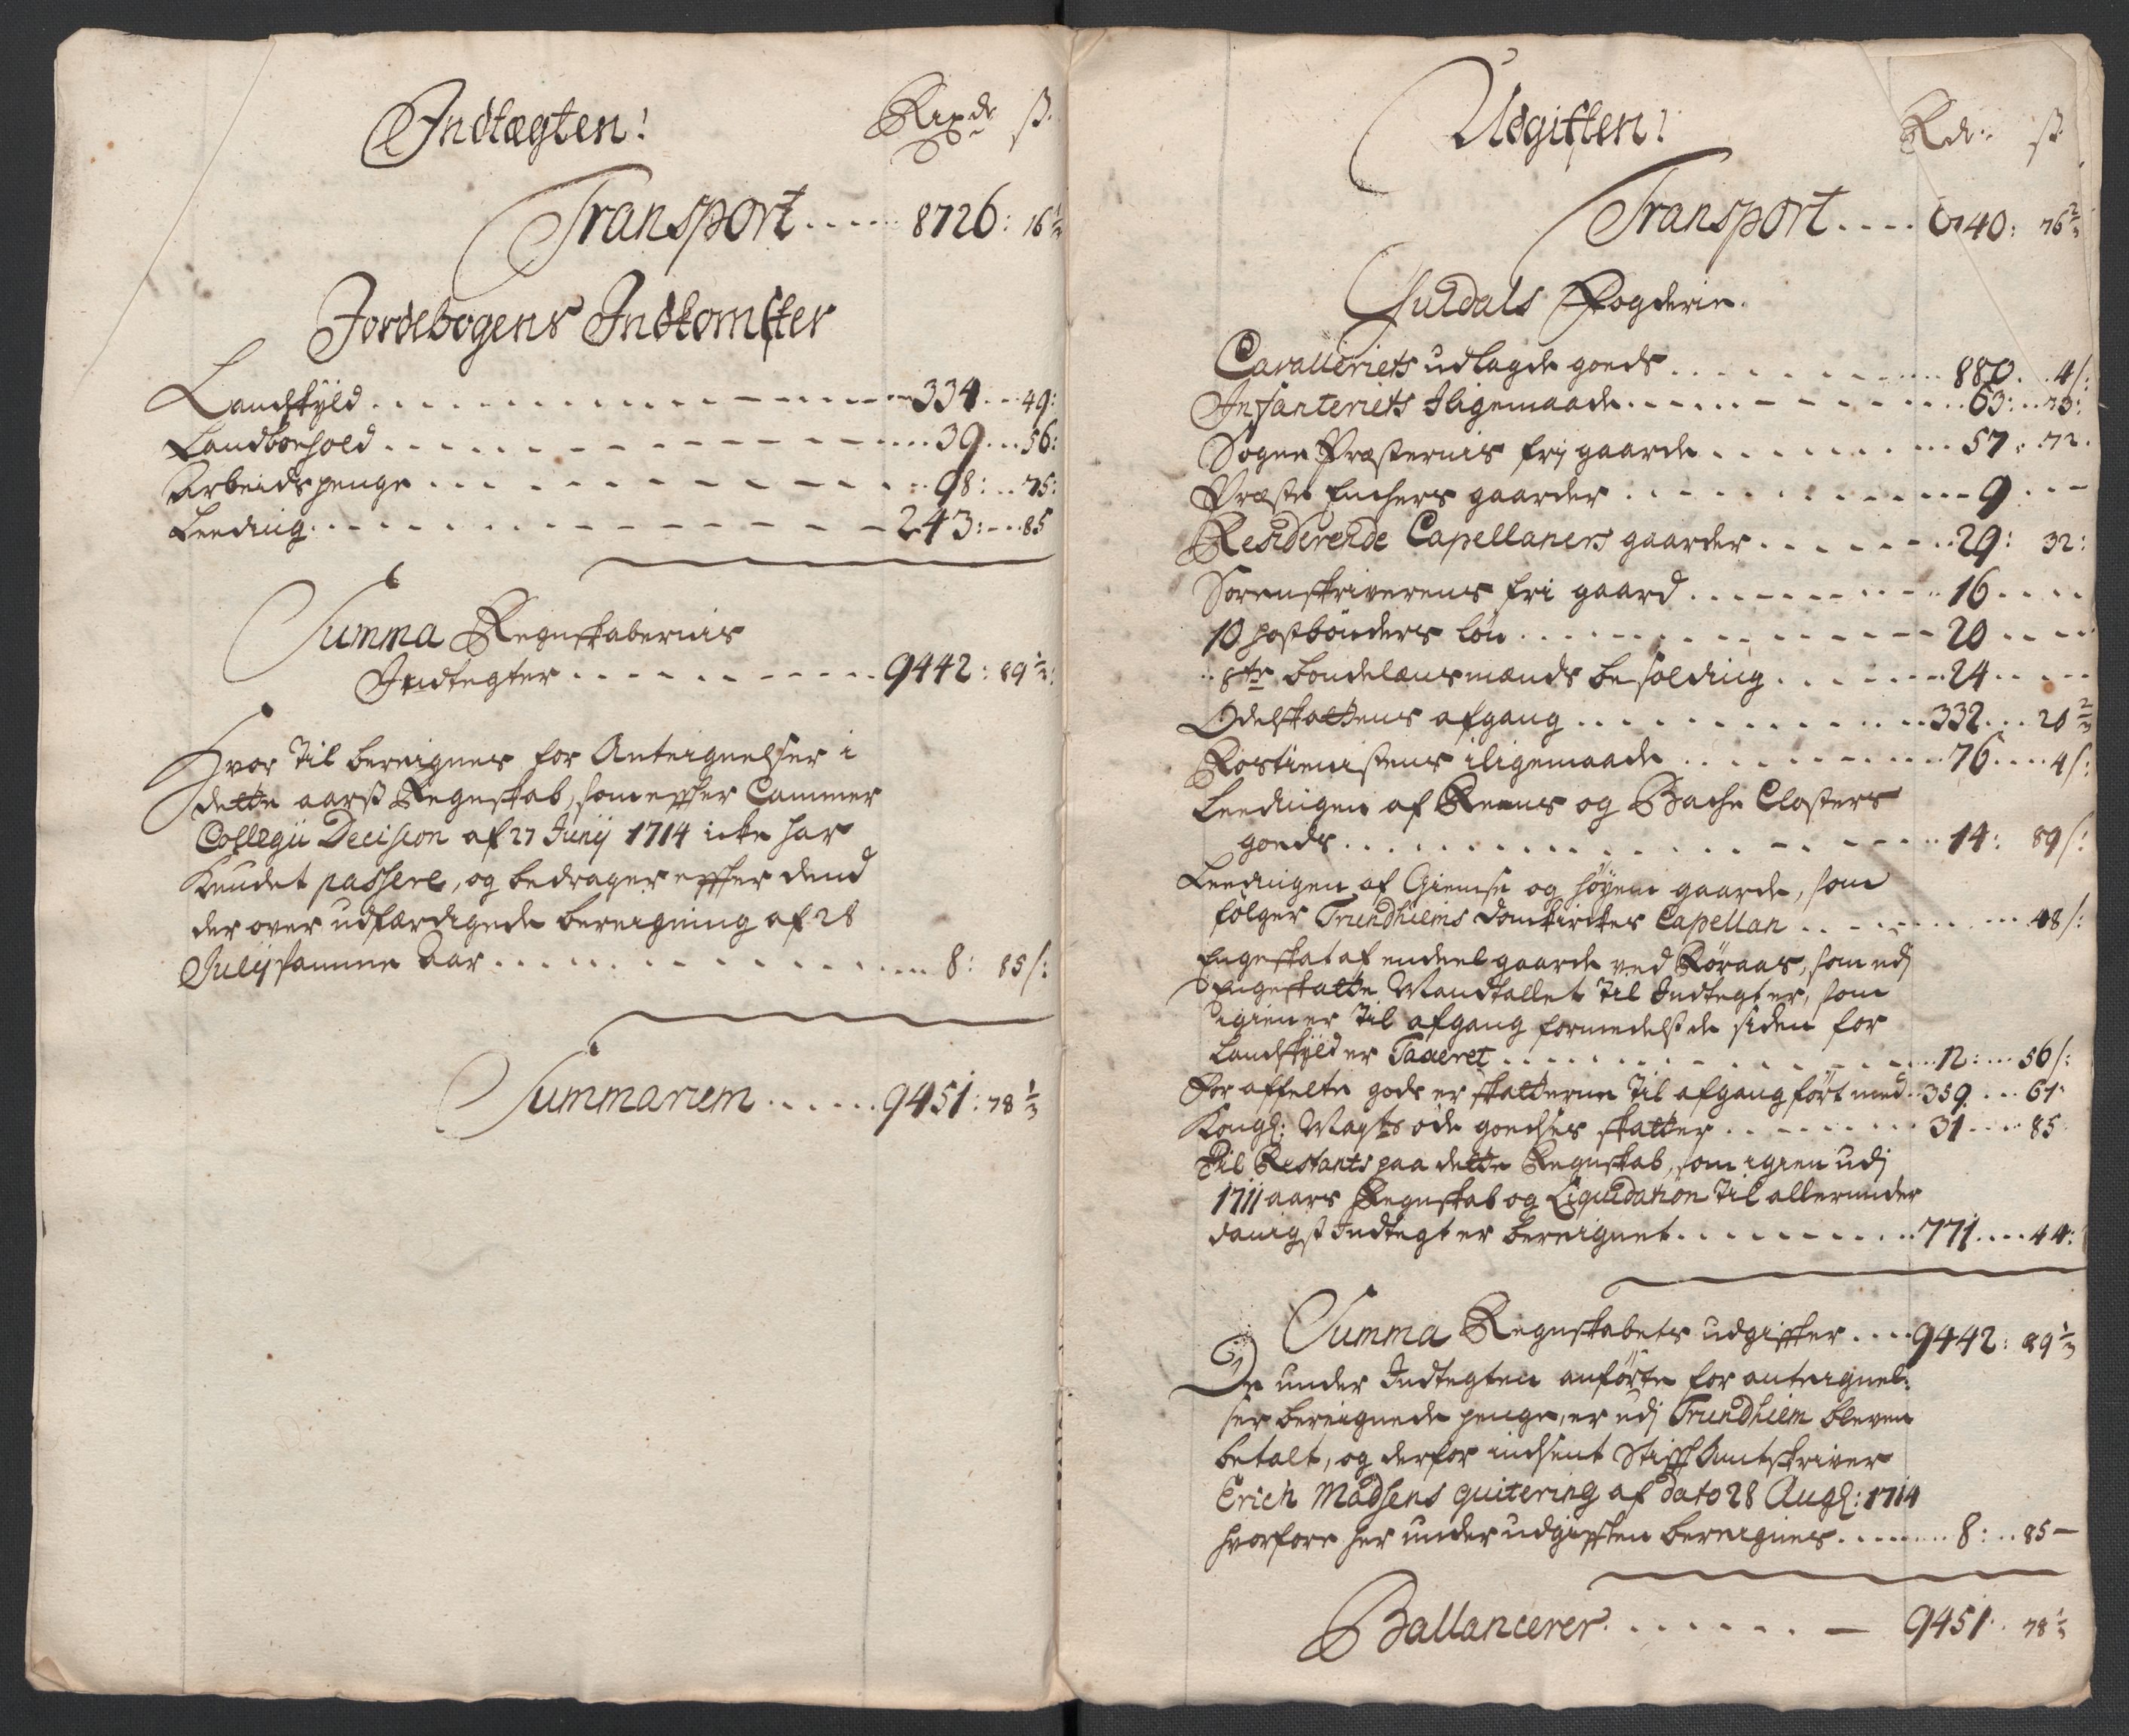 Indtægten! Rixdr ß.
Transport ..... 8726: 16½
Jordebogens Indkomster
Landskÿld ..... 334 ... 49:
Landboehold ..... 39 ... 56:
Arbeidspenge ..... 98: .. 75:
Leeding ..... 243: ... 85
Summa Regnskabernis
Indtegter ..... 9442: 89⅓:
Hvor til bereignes for Anteignelser i
dette aarß Regnskab, som effter Cammer
Collegii Decision af 27 Junij 1714 icke har
kundet passere, og bedrager effter dend
der over udfærdigede bereigning af 28
Julij samme Aar ..... 8: 85/:
Summarum ..... 9451: 78⅓
Udgiften! Rdr: ß
Transport .... 6740: 76⅔
Guldals Fogderie.
Cavalleriets udlagde goeds ..... 880. .. 4/:
Infanteriets Iligemaade ..... 63: .. 73:
Sogne Præsternis frj gaarde ..... 57: 72.
Præste Enchers gaarder ..... 9 ... -
Residerende Capellaners gaarder ..... 29: 32:
Sorenskriverens fri gaard ..... 16 ....
10 postbönders lön ..... 20 ....
8te bondelænsmænds besolding ..... 24 ....
Odelskattens afgang ..... 332 ... 20⅔
Rostienistens iligemaade ..... 76 .... 4/:
Leedingen af Reens og Bache Closters
goeds ..... 14: 89/:
Leedingen af Gimse og höyem gaarde, som
fölger Trundhiems domkirckes Capellan ..... 48/:
Engeskat af endeel gaarde ved Röraas, som udj
Engeskatte Mandtallet til Indtegt er, som
igien er til afgang formedelst de siden for
Landskÿld er Taxeret ..... 12: ... 56/:
For affelte gods er skatterne til afgang fört med .. 359 ... 61:
Kongl: Mayts öde goedses skatter ..... 31 ... 85.
Til Restants paa dette Regnskab, som igien udj
1711 aars Regnskab og Liquidation til allerunder
danigst Indtegt er bereignet ..... 771 .... 44:
Summa Regnskabets udgiffter .... 9442: 89⅓
De under Indtegten anförte for anteignel:
ser bereignede penge, er udj Trundhiem bleven
betalt, og derfor indsent Stifft Amtskriver
Erich Madsens quitering af dato 28 Augl: 1714
hvorfore her under udgifften bereignes ..... 8: .. 85 -
Ballancerer ..... 9451: 78⅓